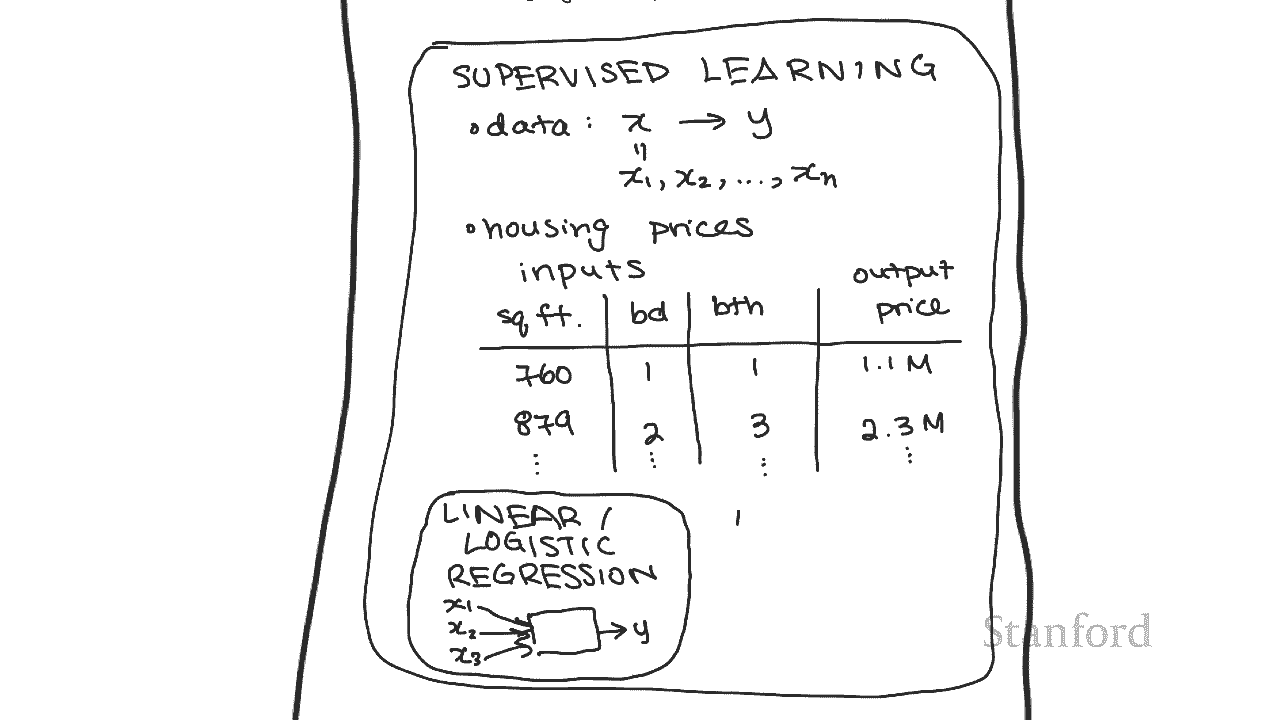 SUPERVISED LEARNING
• data : x → y
"
x1, x2, ..., xn
• housing prices
inputs output
sq ft. bd bth price
760 1 1 1.1 M
879 2 3 2.3 M
⋮ ⋮ ⋮ ⋮
LINEAR /
LOGISTIC
REGRESSION
x1
x2 → y
x3
Stanford